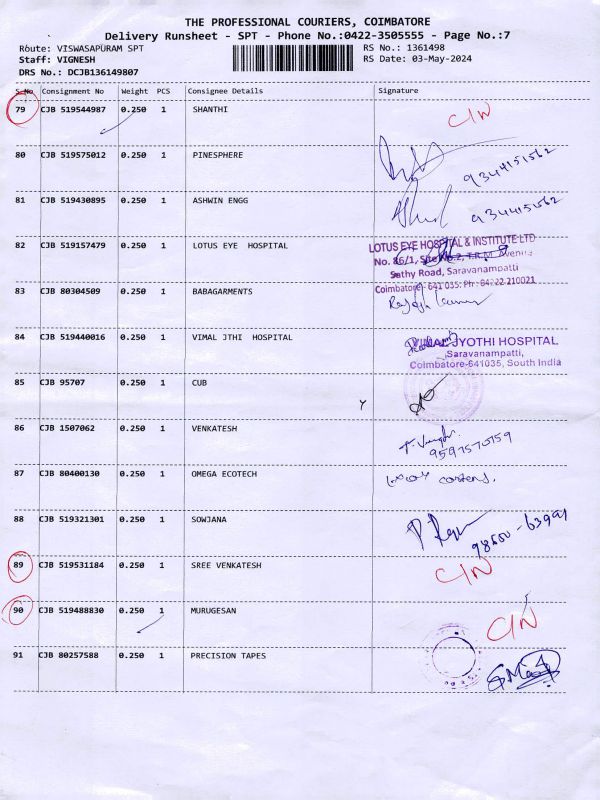 THE PROFESSIONAL COURIERS, COIMBATORE
Delivery Runsheet - SPT - Phone No.:0422-3505555 - Page No.:7
Route: VISWASAPURAM SPT RS No.: 1361498
Staff: VIGNESH RS Date: 03-May-2024
DRS No.: DCJB136149807
S.No Consignment No Weight PCS Consignee Details Signature
79 CJB 519544987 0.250 1 SHANTHI C/N
80 CJB 519575012 0.250 1 PINESPHERE 9344151562
81 CJB 519430895 0.250 1 ASHWIN ENGG 9344151562
82 CJB 519157479 0.250 1 LOTUS EYE HOSPITAL LOTUS EYE HOSPITAL & INSTITUTE LTD
No. 86/1, Site No.2, T.R.M. Avenue
Sathy Road, Saravanampatti
Coimbatore - 641 035. Ph
83 CJB 80304509 0.250 1 BABAGARMENTS
84 CJB 519440016 0.250 1 VIMAL JTHI HOSPITAL VIMAL JYOTHI HOSPITAL
Saravanampatti,
Coimbatore-641035, South India
85 CJB 95707 0.250 1 CUB Y
86 CJB 1507062 0.250 1 VENKATESH
9597570159
87 CJB 80400130 0.250 1 OMEGA ECOTECH
88 CJB 519321301 0.250 1 SOWJANA
89 CJB 519531184 0.250 1 SREE VENKATESH C/N
90 CJB 519488830 0.250 1 MURUGESAN C/N
91 CJB 80257588 0.250 1 PRECISION TAPES